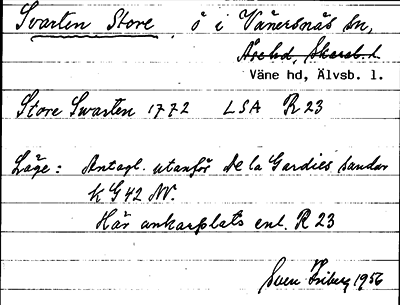 Svarten Store, ö i Vänersnäs sn,
Åse hd, Skarab. l.
Väne hd, Älvsb. l.
Store Swarten 1772 LSA R 23
Läge: Antagl. utanför de la Gardies sandar
k G 42 NV.
Här ankarplats enl. R 23
Sven Friberg 1956